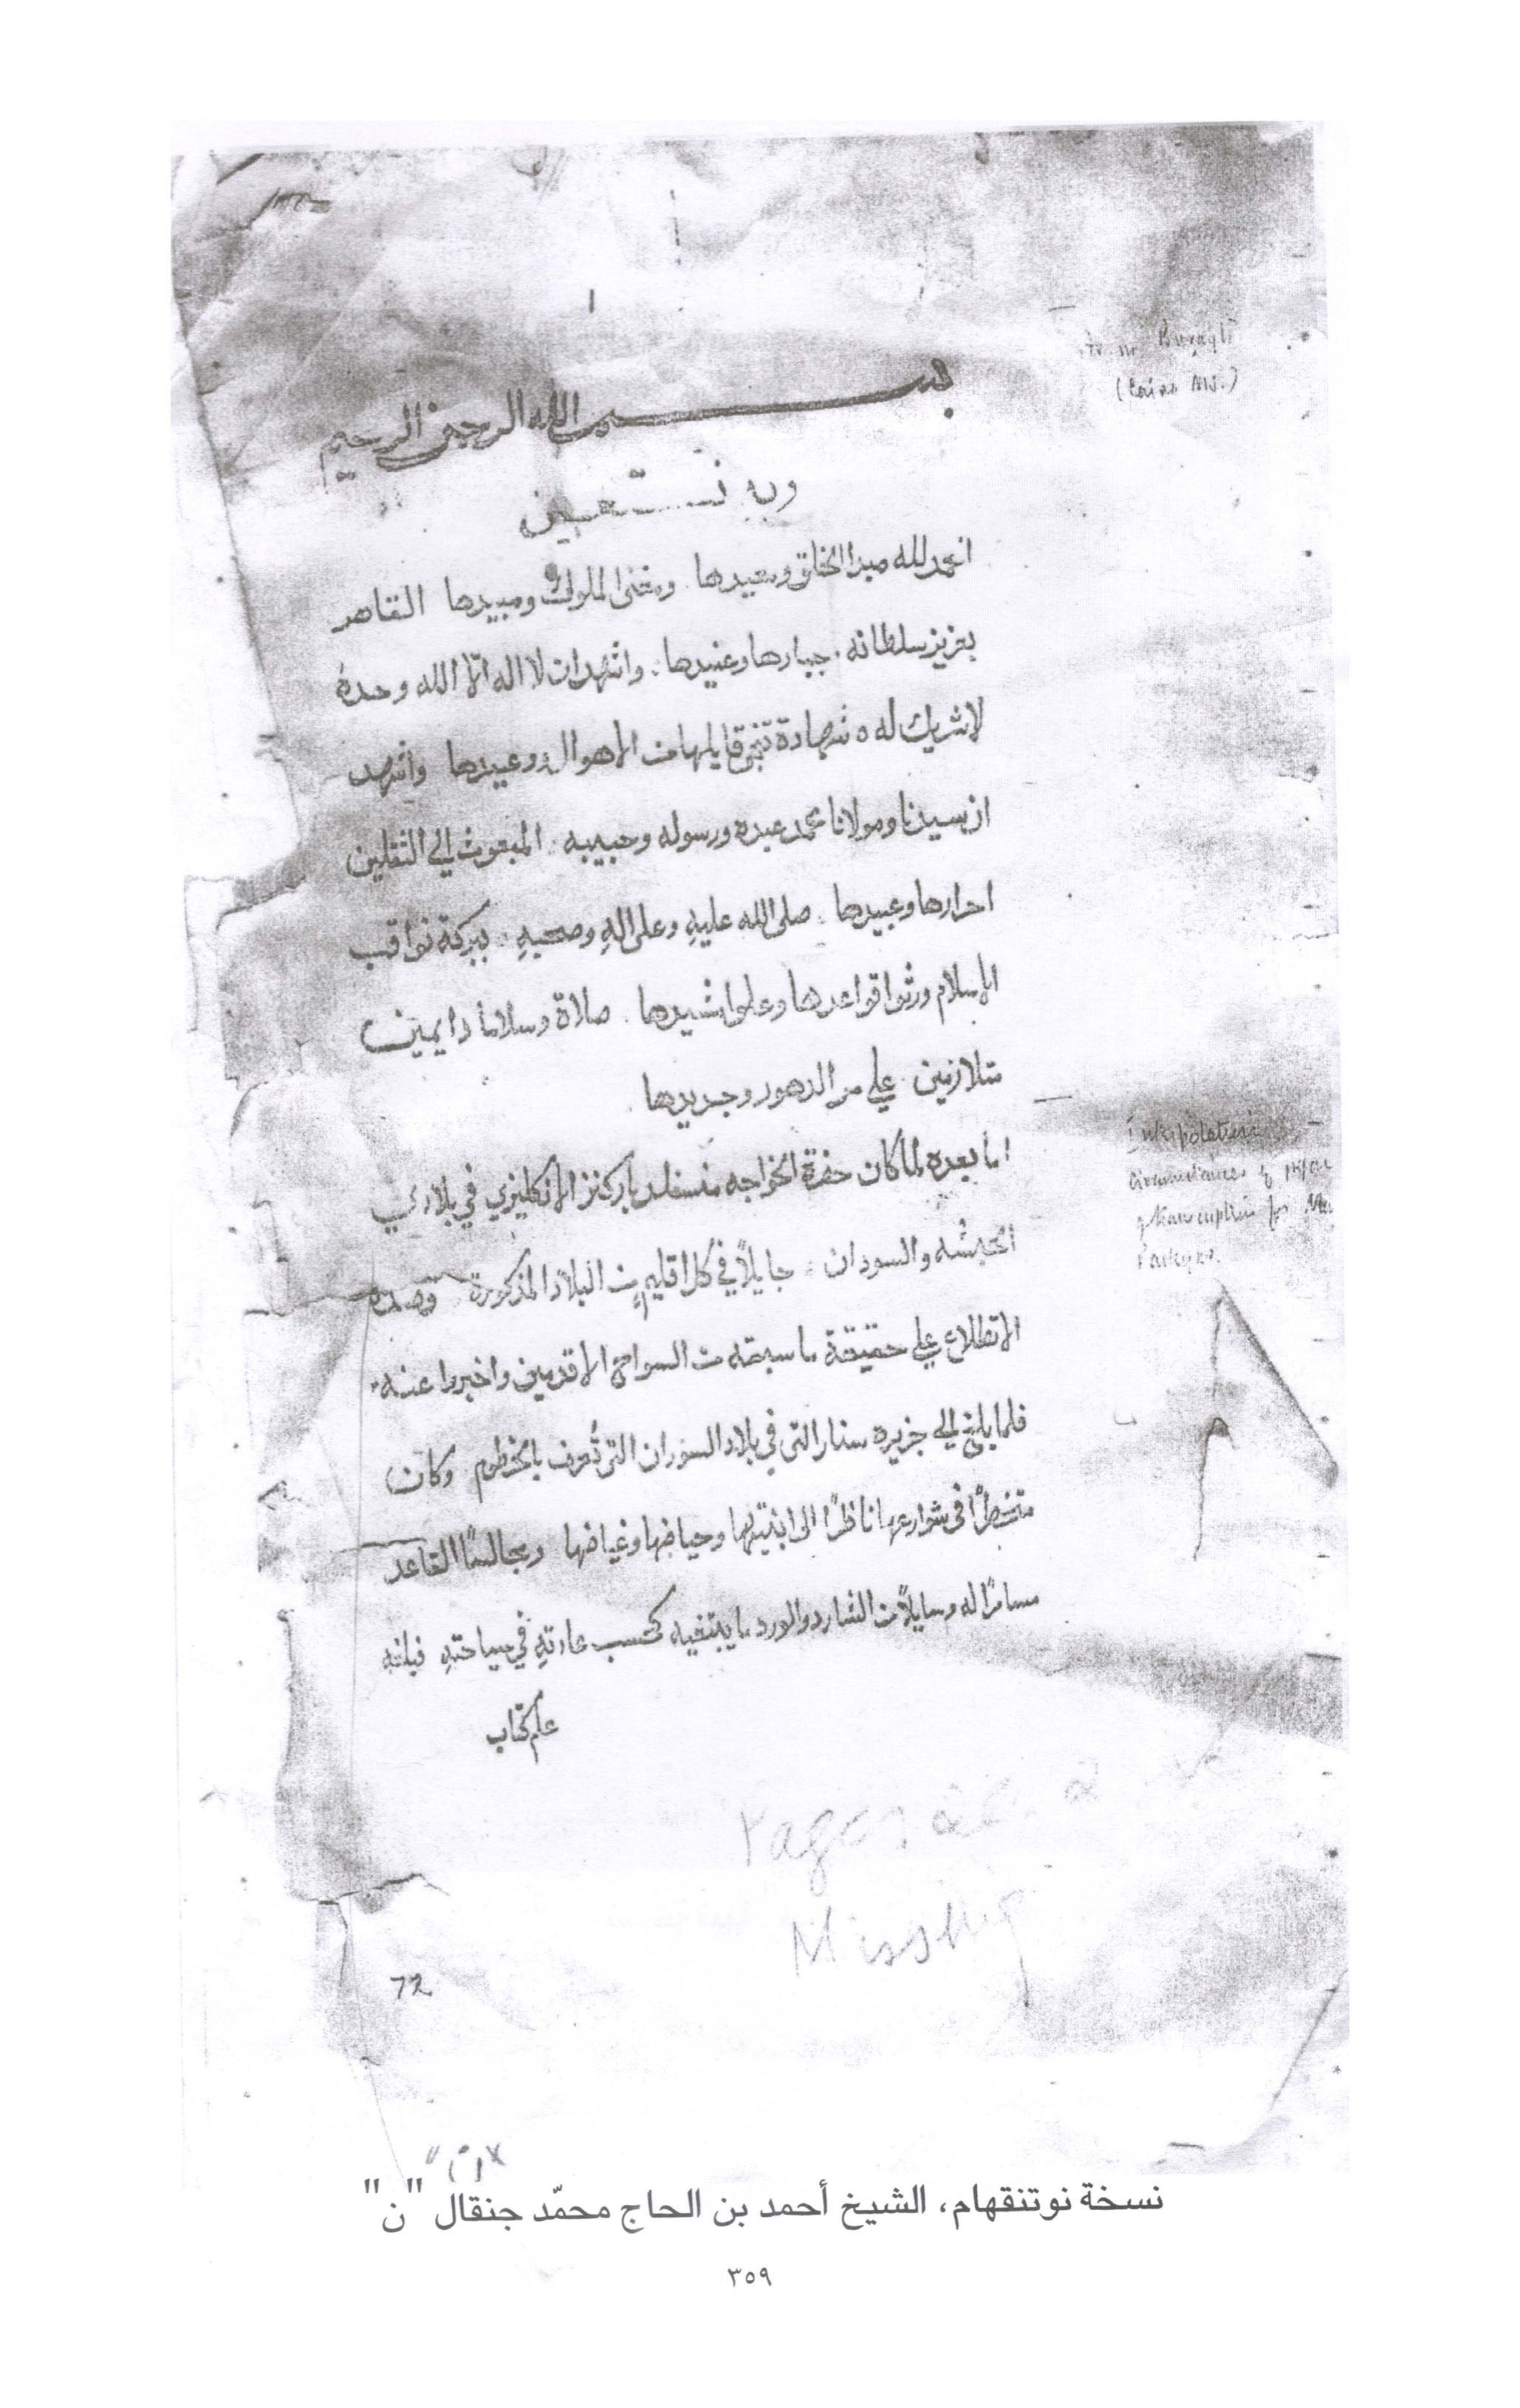 بسم الله الرحمن الرحيم
وبه نستعين
الحمد لله مبدا الخلق ومعيدها ومفنى الملوك ومبيدها القاهر
بعزيز سلطانه جبارها وعنيدها واشهد ان لا اله الا الله وحده
لا شريك له شهادة تنجى قايلها من الاهوال وعيدها واشهد
ان سيدنا ومولانا محمد عبده ورسوله وحبيبه المبعوث الي الثقلين
احرارها وعبيدها صلى الله عليهِ وعلى الهِ وصحبهِ
الاسلام قواعدها صلاة وسلاما دايمين
متلازمين علي مر الدهور وجديدها
اما بعده لما كان حضرة الخواجه منسفلد باركنز الانكليزي في بلادي
الحبشه والسودان جايلاً في كل اقليم من البلاد المذكورة وصده
الاتطلاع علي حقيقة ما سبقه من السواح الاقدمين واخبروا عنه
فلما بلغ الي جزيره سنار التى في بلاد السودان التى تُعرف بالخرطوم وكان
متخطرًا فى شوارعها ناظرًا الى ابنيتها وحياضها وغياضها ومجالسًا القاعد
مسامرًا له وسايلاً من الشارد والورد ما يبتغيه كحسب عادتهِ في سياحتهِ فبلغه
علم كتاب
(Cairo MS.)
Interpolation
circumstances of
transcription for
Parkyns.
Pages
Missing
72
"ن"
نسخة نوتنقهام، الشيخ أحمد بن الحاج محمّد جنقال "ن"
٣٥٩